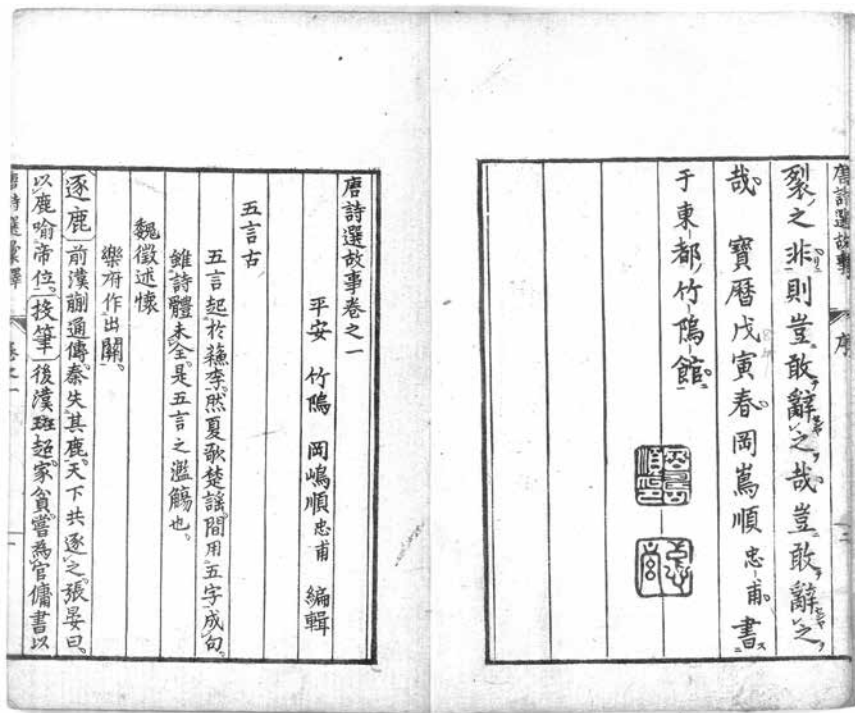 唐詩選故事 序 二
裂之非則豈敢辭之哉豈敢辭之
哉 寶曆戊寅春岡嶌順忠甫書
于東都竹隝館
唐詩選故事卷之一
平安 竹隝 岡嶋順忠甫 編輯
五言古
五言起於蘓李然夏歌楚謡間用五字成句
雖詩體未全是五言之濫觴也
魏徵述懷
樂府作出關
逐鹿 前漢蒯通傳秦失其鹿天下共逐之張晏曰
以鹿喻帝位 投筆 後漢班超家貧嘗為官傭書以
卷之一 一